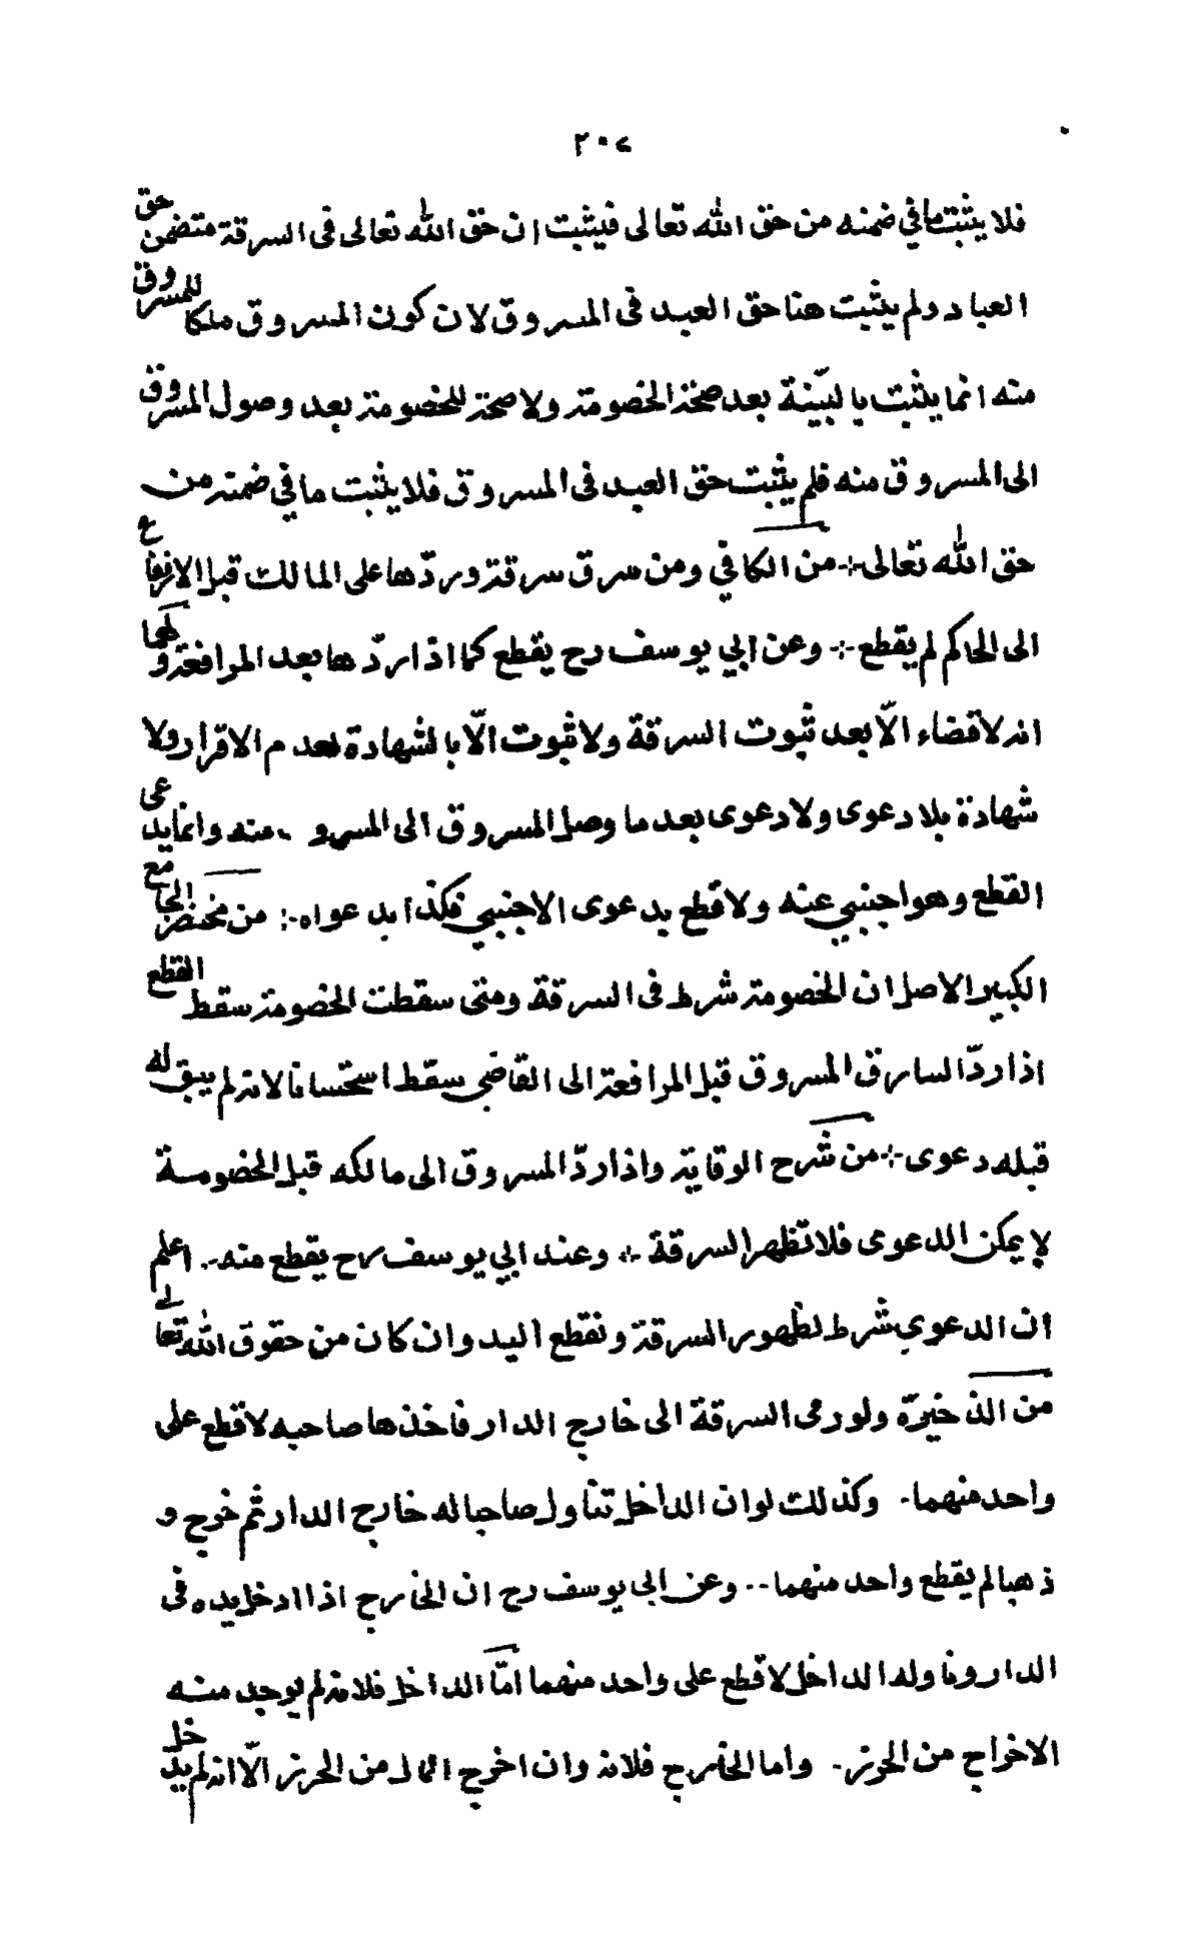 ٢٠٧
فلا يثبت ما في ضمنه من حق الله تعالى فيثبت ان حق الله تعالى فى السرقة متضمن حق
العباد ولم يثبت هنا حق العبد فى المسروق لان كون المسروق ملكا للمسروق
منه انما يثبت بالبيّنة بعد صحّة الخصومة ولا صحّة للخصومة بعد وصول المسروق
الى المسروق منه فلم يثبت حق العبد فى المسروق فلا يثبت ما في ضمنه من
حق الله تعالى ÷ من الكافي ومن سرق سرقة وردّها على المالك قبل الارتفاع
الى الحاكم لم يقطع ÷ وعن ابي يوسف رح يقطع كما اذا ردّها بعد المرافعة ولهما
انه لا قضاء الّا بعد ثبوت السرقة ولا ثبوت الّا بالشهادة لعدم الاقرار ولا
شهادة بلا دعوى ولا دعوى بعد ما وصل المسروق الى المسرو منه وانما يدعى
القطع وهو اجنبي عنه ولا قطع بدعوى الاجنبي فكذا بدعواه ÷ من مختصر الجامع
الكبير الاصل ان الخصومة شرط فى السرقة ومتى سقطت الخصومة سقط القطع
اذا ردّ السارق المسروق قبل المرافعة الى القاضي سقط استحسانا لانه لم يبق له
قبله دعوى ÷ من شرح الوقاية واذا ردّ المسروق الى مالكه قبل الخصومة
لا يمكن الدعوى فلا تظهر السرقة ÷ وعند ابي يوسف رح يقطع منه ÷ اعلم
ان الدعوي شرط لظهور السرقة وتقطع اليد وان كان من حقوق الله تعالى
من الذخيرة ولو رمى السرقة الى خارج الدار فاخذها صاحبه لا قطع على
واحد منهما ٠ وكذلك لو ان الداخل تناول صاحبا له خارج الدار ثم خرج و
ذهبا لم يقطع واحد منهما ٠٠ وعن ابي يوسف رح ان الخارج اذا ادخل يده فى
الدار وناوله الداخل لا قطع على واحد منهما امّا الداخل فلانه لم يوجد منه
الاخراج من الحرز ٠ واما الخارج فلانه وان اخرج المال من الحرز الّا انه لم يدخل